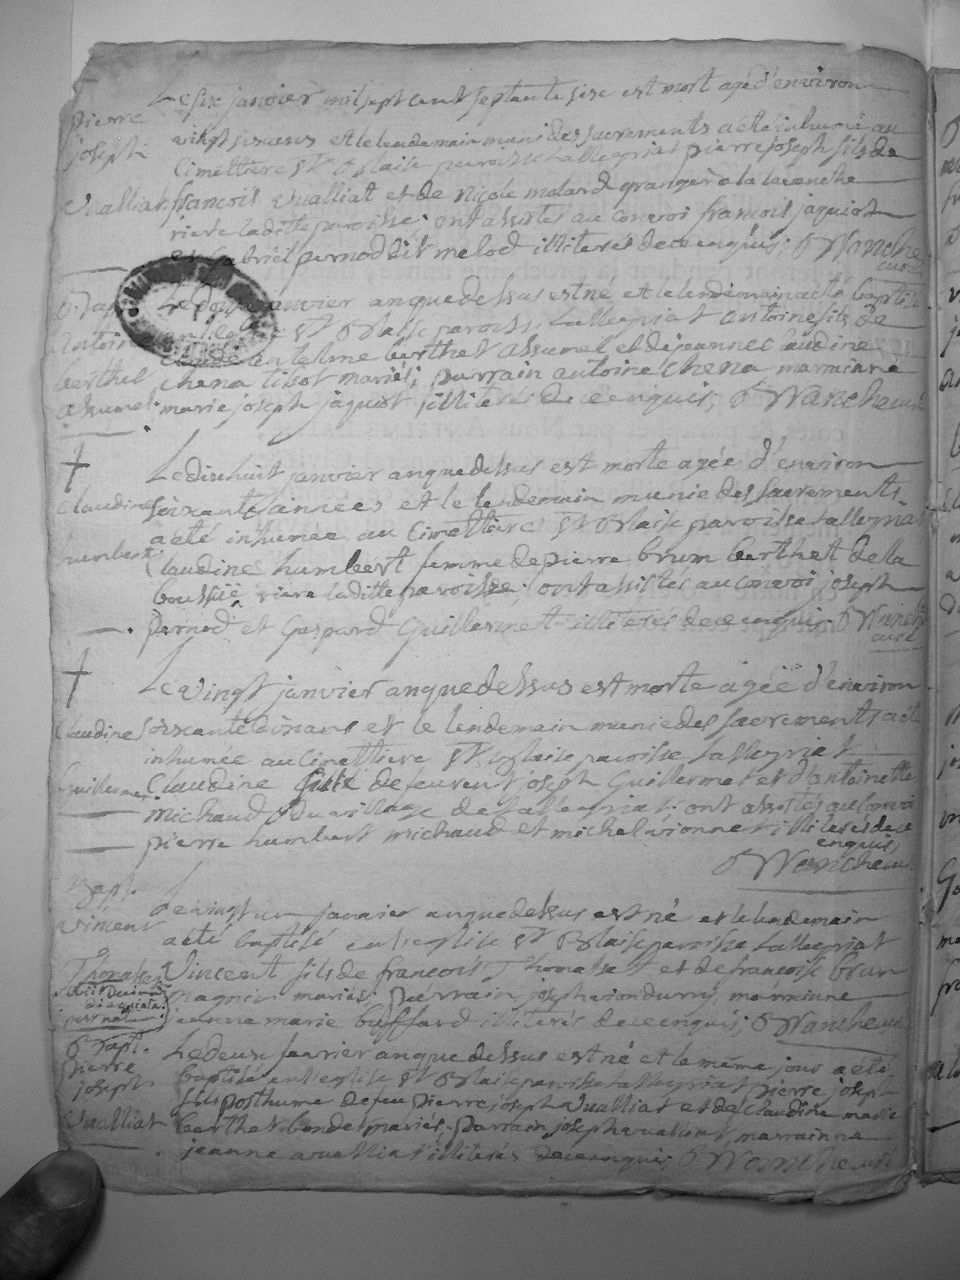 Le six janvier mil sept cent septante sixe est mort agé d'environ
pierre
vingt six ans et le lendemain muni des sacrements a été inhumé au
joseph
Cimettiere St Blaise paroisse tallegriat pierre joseph fils de
Vualliat françois Vualliat et de Nicole molard granger a la
riere laditte paroisse; ont assistes au convoi françois jaquiot
et gabriel pernod dit melod illiteres de ce enquis; Wancheu
curé
Bapt. Le janvier an que dessus est né et le lendemain a été baptisé
antoine St Blaise paroisse tallegriat antoine fils de
berthet antelme berthet assumel et de jeanne Claudine
chena tibot mariés; parrain antoine chena marrainne
assumel marie joseph jaquiot illiteres de ce enquis; Wancheu curé
Le dixhuit janvier an que dessus est morte agée d'environ
Claudine soixante années et le lendemain munie des sacrements
a été inhumée au Cimettiere St Blaise paroisse tallegriat
humbert Claudine humbert femme de pierre brum berthet de la
riere laditte paroisse; ont assistes au convoi joseph
pernod et Gaspard Guillermet illiteres de ce enquis. Wancheu
curé
Le vingt janvier an que dessus est morte agée d'environ
Claudine soixante dix ans et le lendemain munie des sacrements a été
inhumée au Cimettiere St Blaise paroisse tallegriat
Guillermet Claudine fille de laurent joseph Guillermet et d'antoinette
michaud du village de tallegriat; ont assistes au convoi
pierre humbert michaud et michel vionnet illiteres de ce
enquis,
Wancheu
Bapt.
Le vingt un janvier an que dessus est né et le lendemain
vincent
a été baptisé en l'eglise St Blaise paroisse tallegriat
Thomasset Vincent fils de françois Thomasset et de françoise brun
mariés; parrain joseph marrainne
jeanne marie buffard illiteres de ce enquis; Wancheu
Bapt. Le deux fevrier an que dessus est né et le même jour a été
pierre
baptisé en l'eglise St Blaise paroisse tallegriat pierre joseph
joseph
fils posthume de feu pierre joseph Vualliat et de Claudine marie
Vualliat berthet bondet mariés; parrain joseph vualliat, marrainne
jeanne a vualliat illiteres de ce enquis Wancheu curé